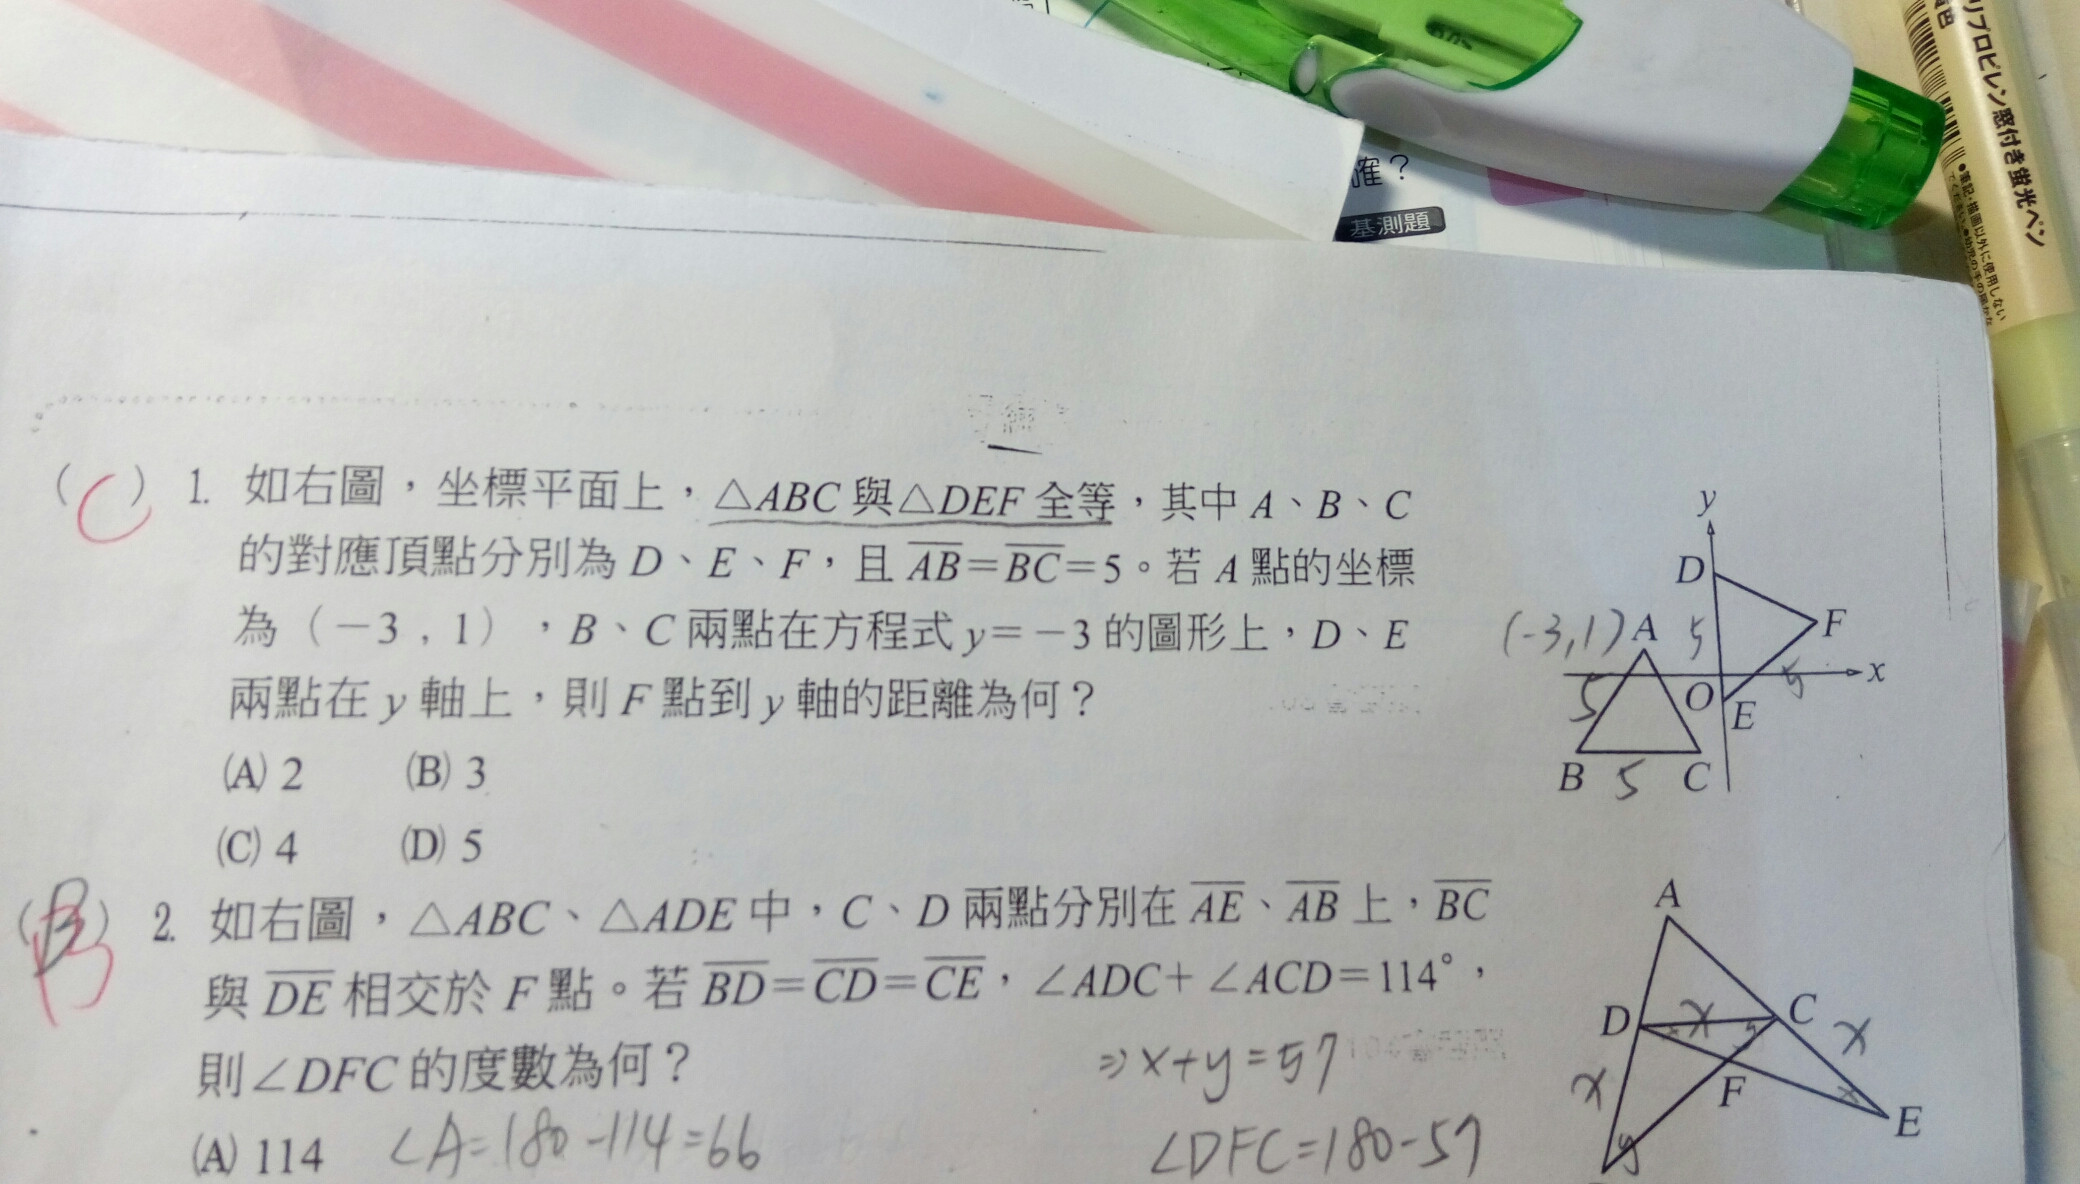 確？
基測題
リプロピレン窓付き蛍光ペン
(C) 1. 如右圖，坐標平面上，△ABC與△DEF全等，其中A、B、C
的對應頂點分別為D、E、F，且AB=BC=5。若A點的坐標
為（－3 , 1），B、C兩點在方程式y=－3的圖形上，D、E
兩點在y軸上，則F點到y軸的距離為何？
(A) 2 (B) 3
(C) 4 (D) 5
y
D
F
(-3,1) A 5
x
5
5
O
E
B 5 C
(B) 2. 如右圖，△ABC、△ADE中，C、D兩點分別在AE、AB上，BC
與DE相交於F點。若BD=CD=CE，∠ADC+∠ACD=114°，
則∠DFC的度數為何？
⇒x+y=57
(A) 114 ∠A=180-114=66 ∠DFC=180-57
A
D x C x
x F x E
y